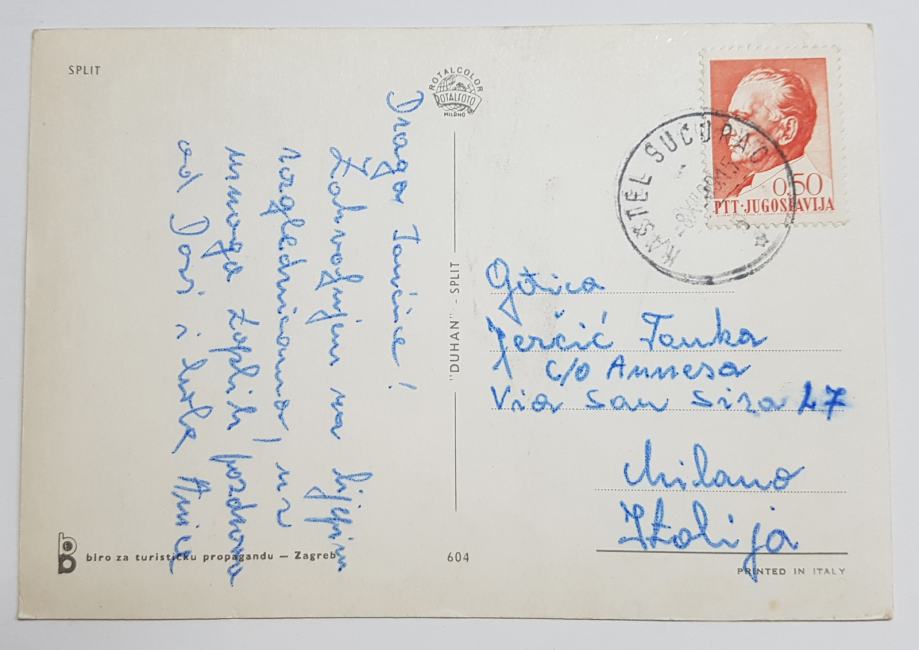 SPLIT
ROTALCOLOR
ROTALFOTO
MILANO
KAŠTEL SUĆURAC
0.50
PTT·JUGOSLAVIJA
Draga Tančice!
Zahvaljujem na lijepim
razglednicama, uz
mnogo toplih pozdrava
od Dosi i tete Anice
"DUHAN" - SPLIT
Gđica
Jerčić Tanka
c/o Annesa
Via San Siro 27
Milano
Italija
biro za turističku propagandu — Zagreb
604
PRINTED IN ITALY